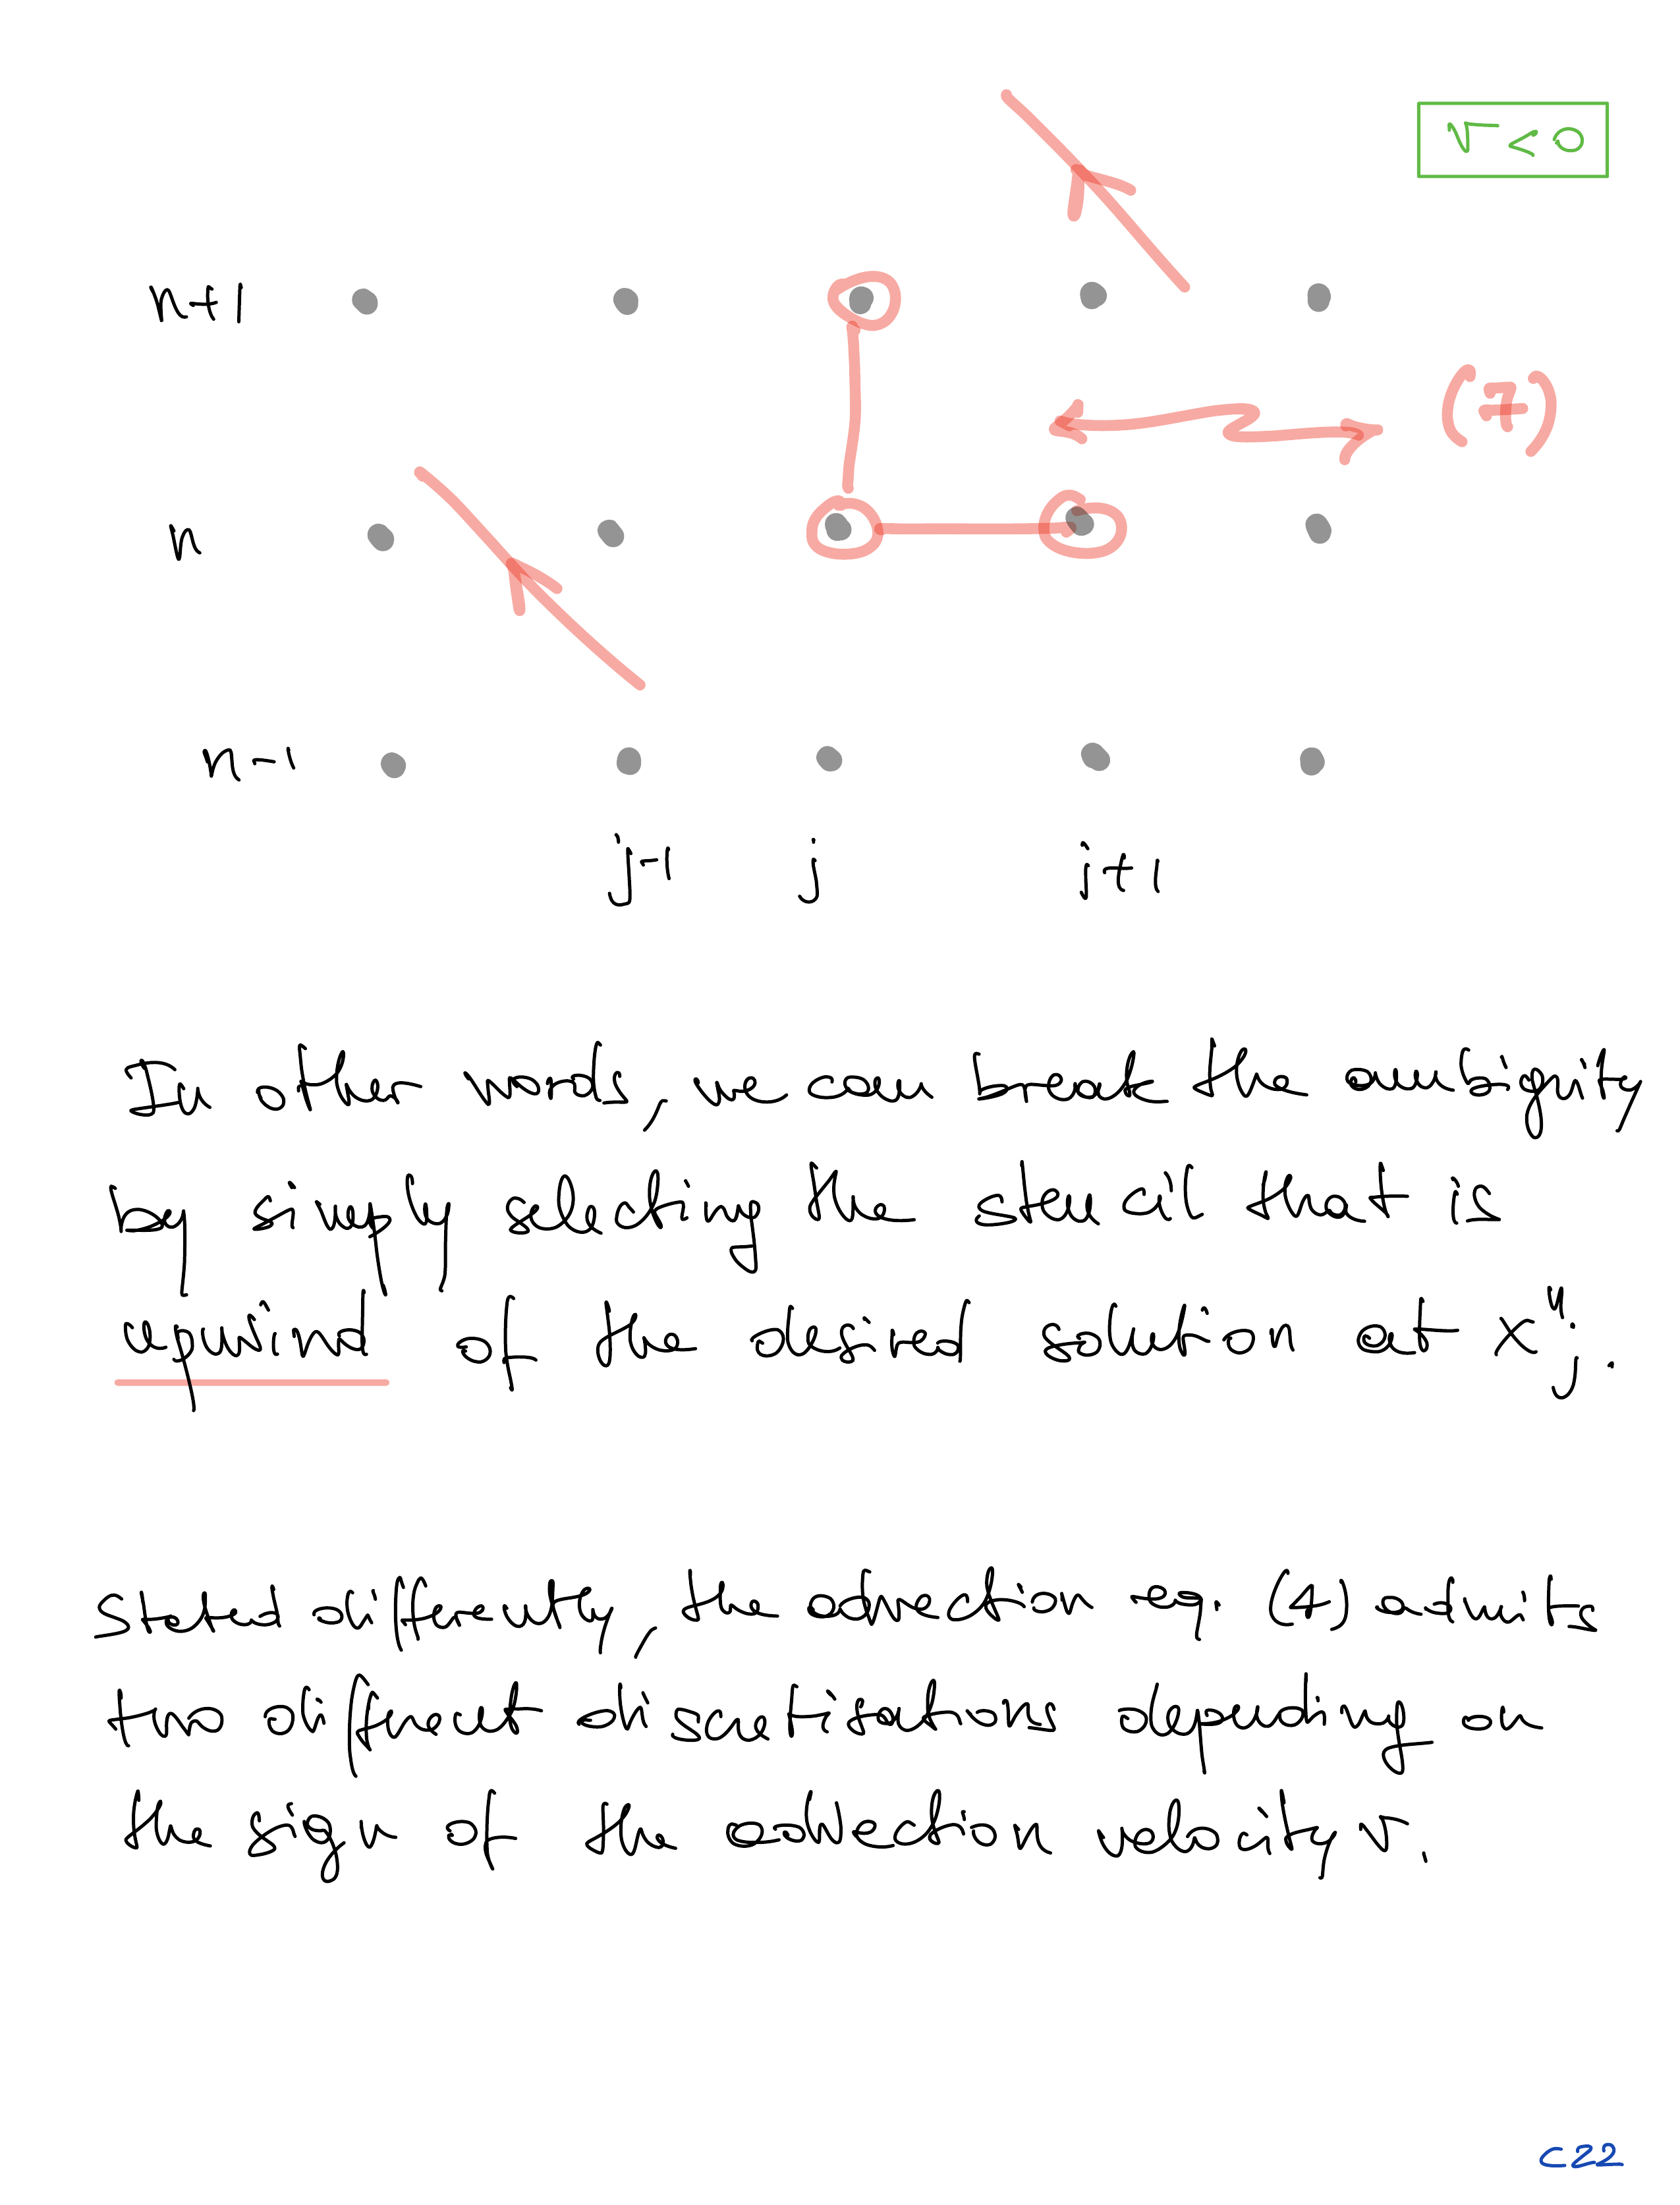 v < 0
n+1
(7)
n
n-1
j-1 j j+1
In other words, we can break the ambiguity
by simply selecting the stencil that is
required of the desired solution at xⁿⱼ.
Stated differently, the advection eq. (4) admits
two different discretisations depending on
the sign of the advection velocity v.
C22